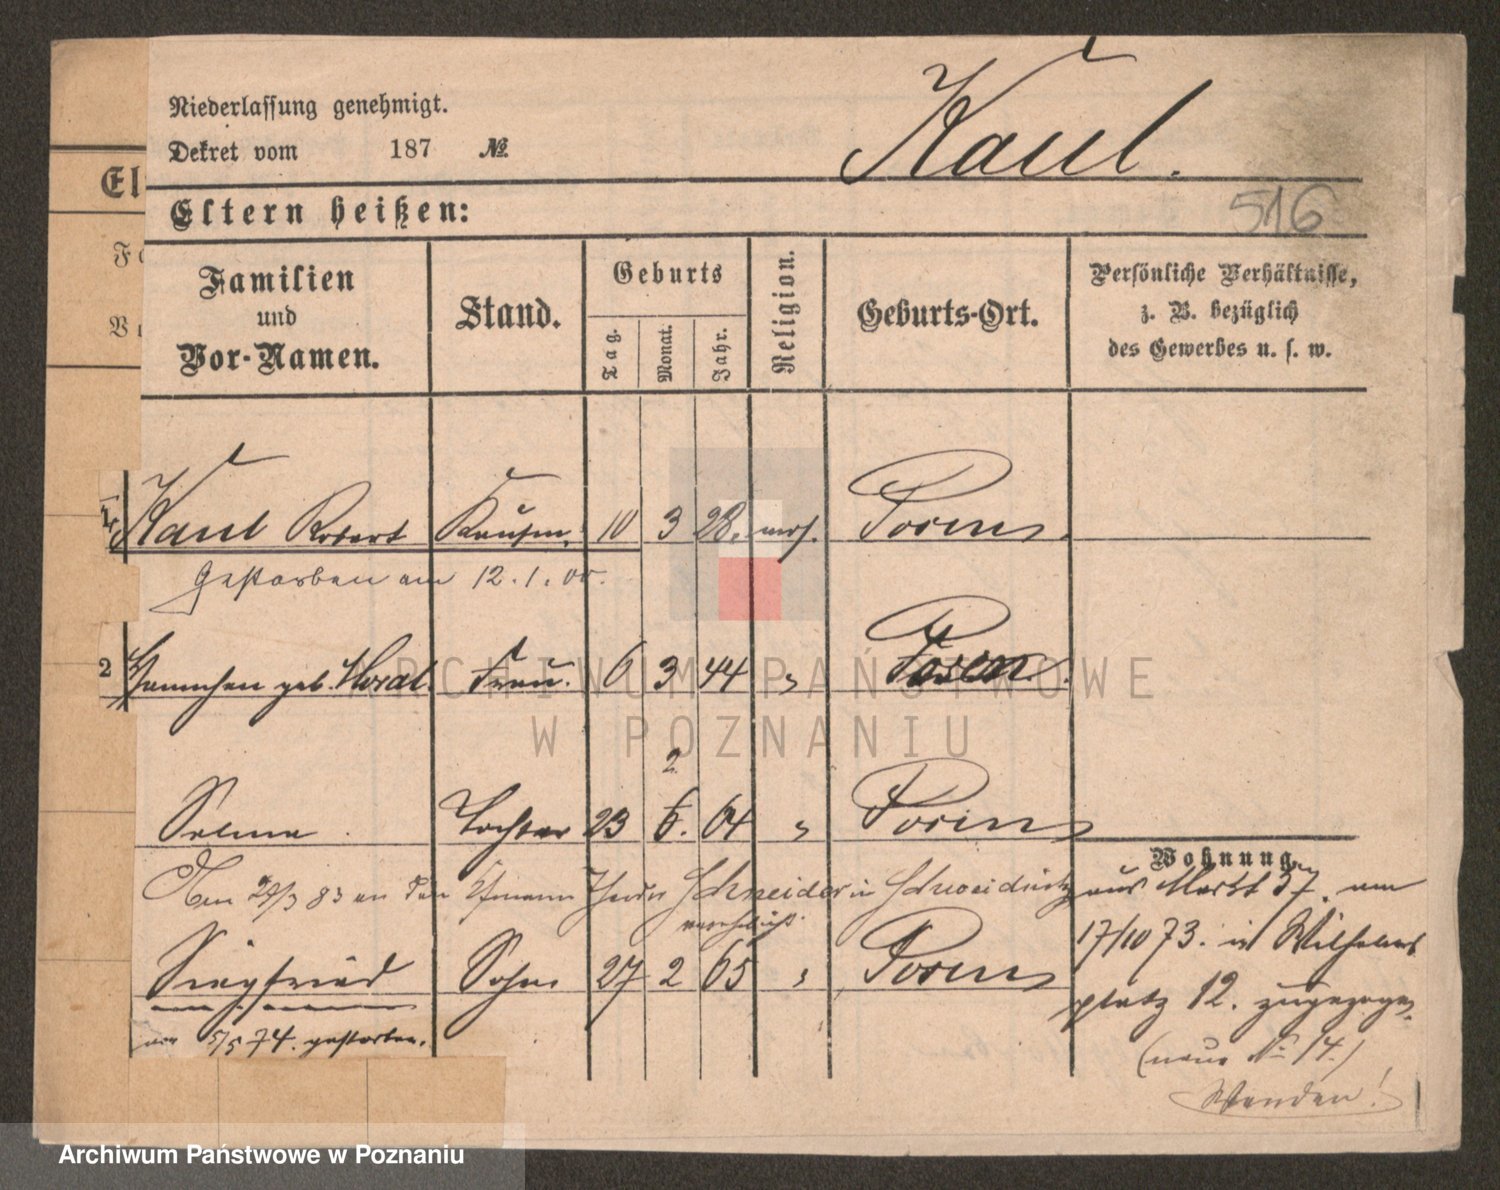 Niederlassung genehmigt.
Dekret vom 187 №
Kaul.
516
El
Eltern heißen:
Fa
Familien
und
Vo
Vor-Namen.
Stand.
Geburts
Tag.
Monat.
Jahr.
Religion.
Geburts-Ort.
Persönliche Verhältnisse,
z. B. bezüglich
des Gewerbes u. s. w.
1. Kaul Robert Kaufm. 10 3 28. mos. Posen
Gestorben am 12.1.00.
2 Hannchen geb. Horal. Frau. 6 3 44 " Posen.
2
Selma. Tochter 23 6. 64 " Posen
Am 24/3 83 an den Kfmann Schneider in Schweidnitz
verehelicht.
Siegfried Sohn 27 2 65 " Posen
am 5/5 74. gestorben.
Wohnung.
aus Markt 37. am
17/10 73. in Wilhelms
platz 12. zugezogen.
(neue № 14.)
Wenden!
ARCHIWUM PAŃSTWOWE
W POZNANIU
Archiwum Państwowe w Poznaniu